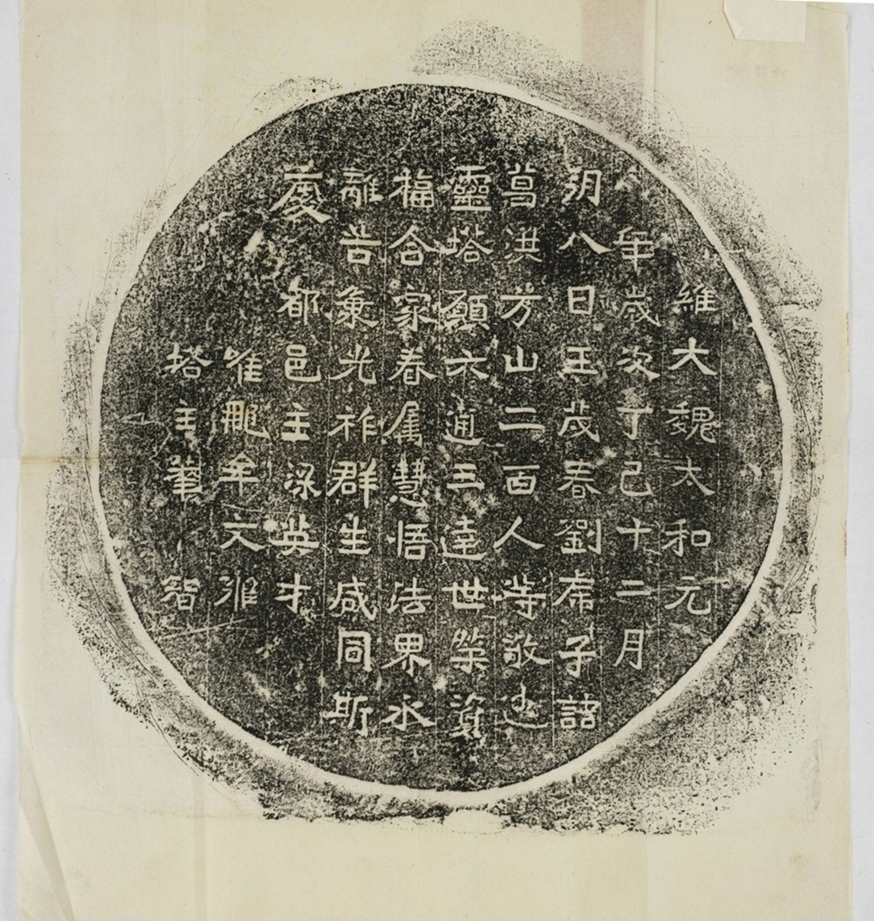 維大魏太和元
年歲次丁巳十二月
朔八日王茂春劉席子
葛洪方山二百人等敬造
靈塔願六通三達世榮資
福合家眷屬慧悟法界永
離苦彙光祚群生咸同斯
慶 都邑主梁英才
唯那牟文雍
塔主 智